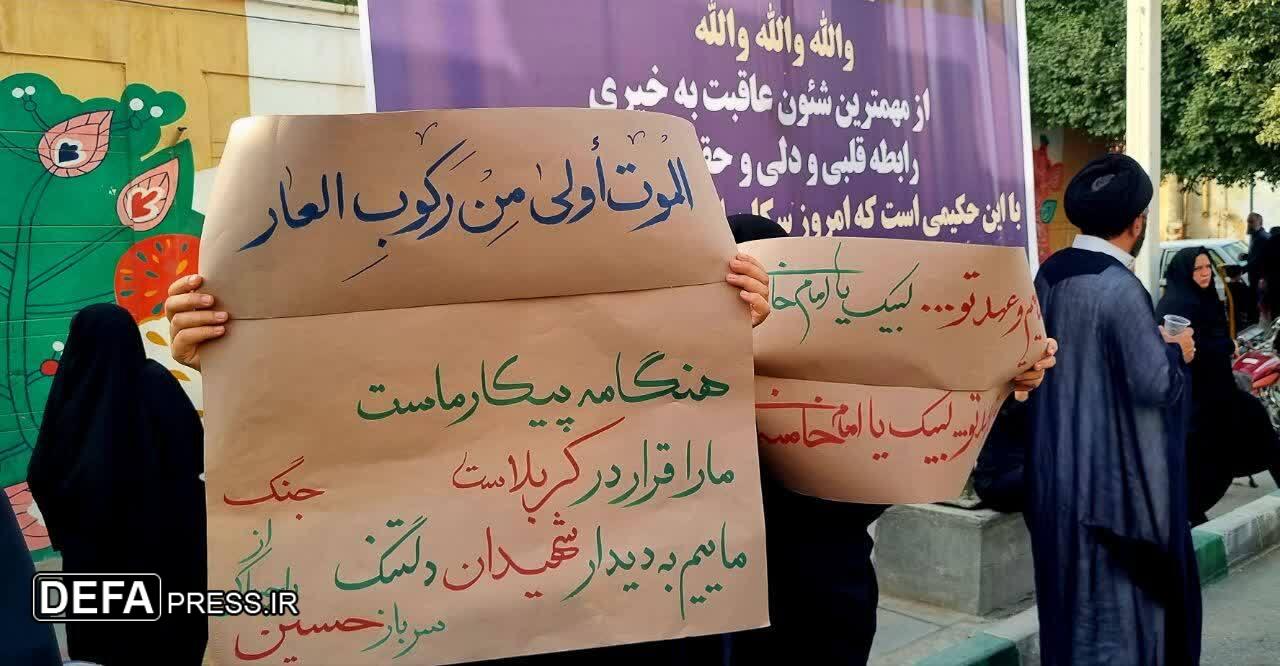 والله والله والله
از مهمترین شئون عاقبت به خیری
رابطه قلبی و دلی و
با این حکیمی است که امروز
الموت أولیٰ مِنْ رَكوبِ العار
هنگامه پیکار ماست
ما را قرار در کربلاست
ماییم به دیدار شهیدان دلتنگ
جنگ
از
سرباز حسین
و عهد تو... لبیک یا امام
تو... لبیک یا امام
DEFAPRESS.IR